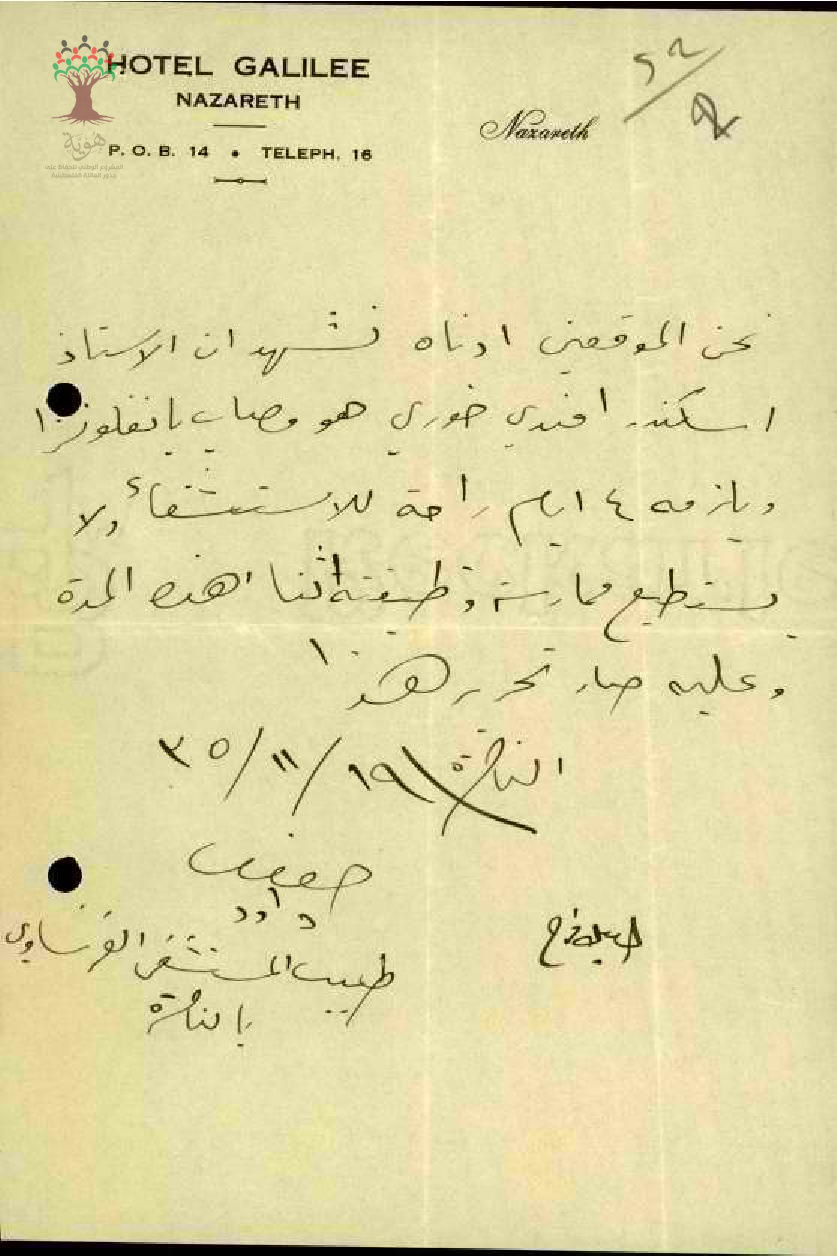 HOTEL GALILEE
NAZARETH
P. O. B. 14 • TELEPH. 16
Nazareth
هوية
نحن الموقعين ادناه نشهد ان الاستاذ
اسكندر افندي خوري هو مصاب بانفلونزا
ويلزمه ٤ ايام راحة للاستشفاء ولا
يستطيع ممارسة وظيفته اثناء هذه المدة
وعليه صار تحرير هذا
الناصرة ١٩/١١/٣٥
داود
طبيب المستشفى الفرنساوي
بالناصرة